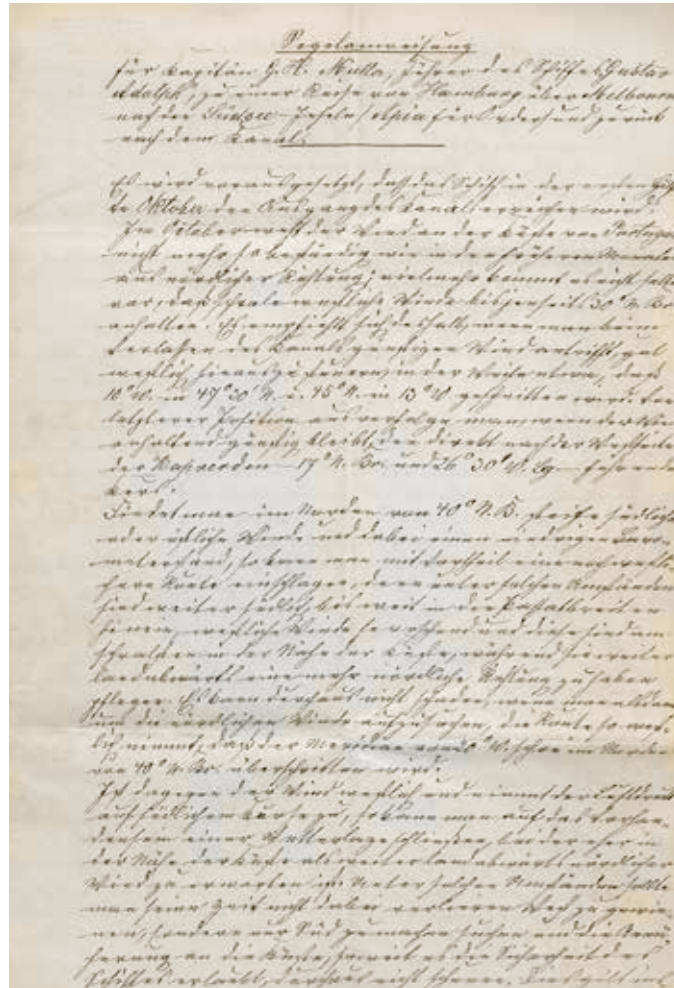 Segelanweisung
für Kapitän G. H. Mulla, Führer des Schiffes „Gustav
Adolph“, zu einer Reise von Hamburg über Melbourne
nach den Südsee-Inseln/Apia für Order und zurück
nach dem Kanal.
Es wird vorausgesetzt, daß das Schiff in der ersten
Oktober den Ausgang des Kanals erreichen wird.
Im Oktober weht der Wind an der Küste von Portugal
nicht mehr so beständig wie in den früheren Monaten
aus nördlicher Richtung; vielmehr kommt es nicht selten
vor, daß westliche Winde bis jenseits 30° N. Br.
anhalten. Es empfiehlt sich deshalb, wenn man beim
Verlassen des Kanals günstigen Wind antrifft, gut
westlich hinaus zu steuern, in der Weise etwa, daß
10° W. in 47° 30' N. u. 45° N. in 13° W. geschnitten wird. Von
letzterer Position aus verfolge man, wenn der Wind
anhaltend günstig bleibt, den direkt nach der Westseite
der Kapverden — 17° N. Br. und 26° 30' W. Lg. — führenden
Kurs.
Findet man im Norden von 40° N. B. steife südliche
oder Winde und dabei einen niedrigen Baro-
meterstand, so kann man mit Vortheil eine noch westli-
chere Route einschlagen, denn unter solchen Umständen
sind weiter südlich, bis weit in die Passatbreiten
hinein, westliche Winde herrschend und diese sind am
in der Nähe der Küste, während sie weiter
landabwärts eine mehr nördliche Richtung zu haben
pflegen. Es kann durchaus nicht schaden, wenn man alsdann
um die nördlichen Winde aufzusuchen, die Route so west-
lich nimmt, daß der Meridian von 20° W. schon im Norden
von 40° N. Br. überschritten wird.
Ist dagegen der Wind westlich und nimmt der Luftdruck
auf südlichem Kurse zu, so kann man auf das Vorhan-
densein einer Wetterlage schließen, bei der eher in
der Nähe der Küste als weiter landabwärts nördlicher
Wind zu erwarten ist. Unter solchen Umständen sollte
man seine Zeit nicht dabei verlieren West zu gewin-
nen, sondern nur Süd zu machen suchen und die Annä-
herung an die Küste, soweit es die Sicherheit des
Schiffes erlaubt, durchaus nicht scheuen. Dies gilt